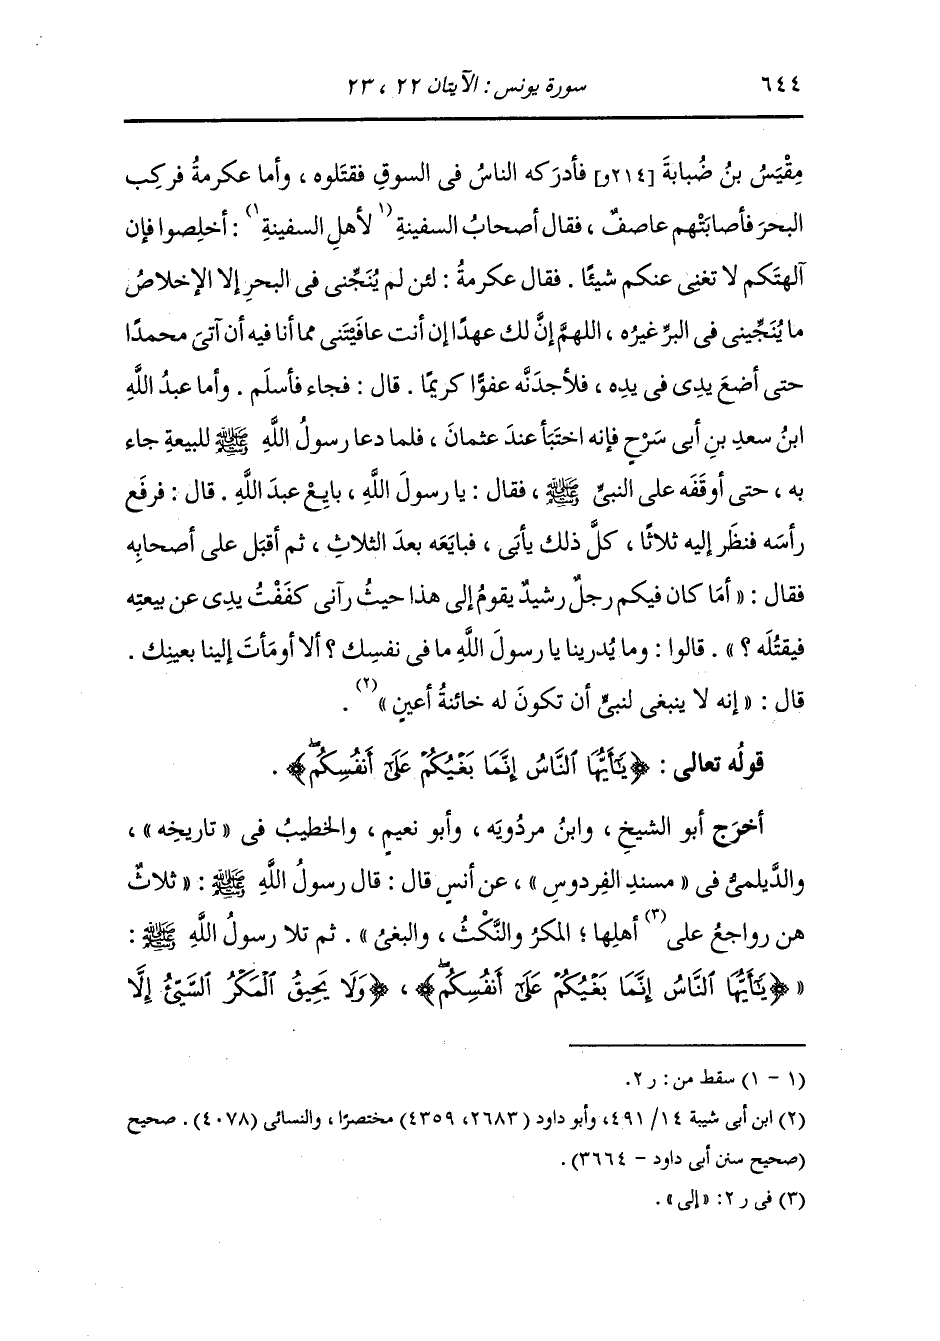 ٦٤٤ سورة يونس : الآيتان ٢٢ ، ٢٣
مِقْيَسُ بنُ ضُبابةَ [٢١٤و] فأدرَكه الناسُ فى السوقِ فقتَلوه ، وأما عكرمةُ فركِب
البحرَ فأصابَتْهم عاصفٌ ، فقال أصحابُ السفينةِ (١ لأهلِ السفينةِ ١) : أخلِصوا فإن
آلهتَكم لا تغنِى عنكم شيئًا . فقال عكرمةُ : لئن لم يُنَجِّنى فى البحرِ إلا الإخلاصُ
ما يُنَجِّينى فى البرِّ غيرُه ، اللهمَّ إنَّ لك عهدًا إن أنت عافَيْتَنى مما أنا فيه أن آتىَ محمدًا
حتى أضعَ يدِى فى يدِه ، فلأجدَنَّه عفوًا كريمًا . قال : فجاء فأسلَم . وأما عبدُ اللَّهِ
ابنُ سعدِ بنِ أبى سَرْحٍ فإنه اختَبَأ عندَ عثمانَ ، فلما دعا رسولُ اللَّهِ ﷺ للبيعةِ جاء
به ، حتى أوقَفَه على النبىِّ ﷺ ، فقال : يا رسولَ اللَّهِ ، بايِعْ عبدَ اللَّهِ . قال : فرفَع
رأسَه فنظَر إليه ثلاثًا ، كلَّ ذلك يأبَى ، فبايَعَه بعدَ الثلاثِ ، ثم أقبَل على أصحابِه
فقال : « أمَا كان فيكم رجلٌ رشيدٌ يقومُ إلى هذا حيثُ رآنى كفَفْتُ يدِى عن بيعتِه
فيقتُلَه ؟ » . قالوا : وما يُدرينا يا رسولَ اللَّهِ ما فى نفسِك ؟ ألا أومَأتَ إلينا بعينِك .
قال : « إنه لا ينبغى لنبىٍّ أن تكونَ له خائنةُ أعينٍ » (٢) .
قولُه تعالى : ﴿يَٰٓأَيُّهَا ٱلنَّاسُ إِنَّمَا بَغْيُكُمْ عَلَىٰٓ أَنفُسِكُمۖ﴾ .
أخرَج أبو الشيخِ ، وابنُ مردُويَه ، وأبو نعيمٍ ، والخطيبُ فى « تاريخِه » ،
والدَّيلمىُّ فى « مسندِ الفِردوسِ » ، عن أنسٍ قال : قال رسولُ اللَّهِ ﷺ : « ثلاثٌ
هن رواجعُ على (٣) أهلِها ؛ المكرُ والنَّكْثُ ، والبغىُ » . ثم تلا رسولُ اللَّهِ ﷺ :
« ﴿يَٰٓأَيُّهَا ٱلنَّاسُ إِنَّمَا بَغْيُكُمْ عَلَىٰٓ أَنفُسِكُمۖ﴾ ، ﴿وَلَا يَحِيقُ ٱلْمَكْرُ ٱلسَّيِّئُ إِلَّا
(١ - ١) سقط من : ر ٢.
(٢) ابن أبى شيبة ١٤/ ٤٩١، وأبو داود (٢٦٨٣، ٤٣٥٩) مختصرًا ، والنسائى (٤٠٧٨) . صحيح
(صحيح سنن أبى داود - ٣٦٦٤) .
(٣) فى ر ٢: «إلى» .